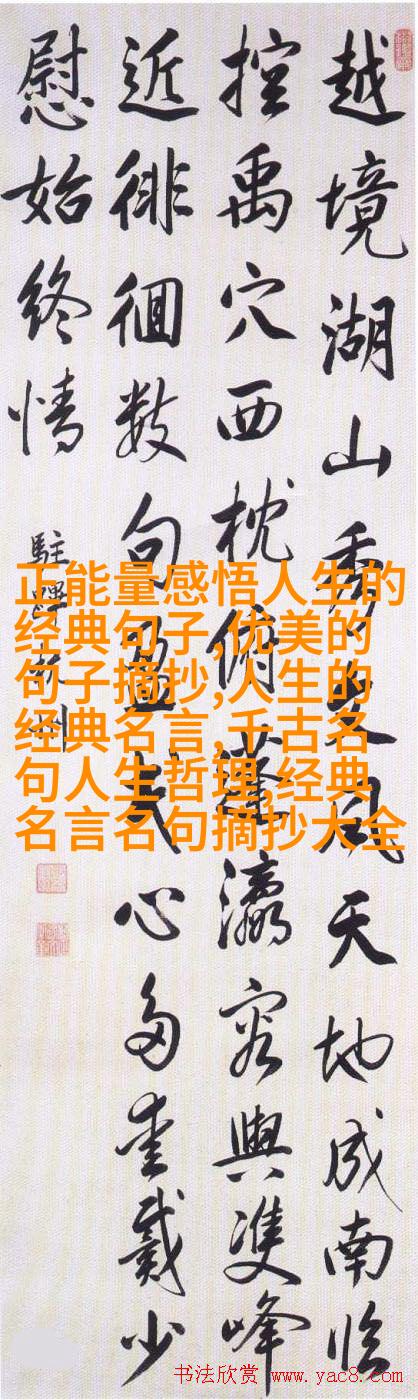 越境湖山秀文風天地成南临
控禹穴西枕俯蓬瀛容與雙峰
近徘徊数句盈民心多愛戴少
慰始終情
駐蹕杭州
正能量感悟人生的
经典句子,优美的
句子摘抄,人生的
经典名言,千古名
句人生哲理,经典
名言名句摘抄大全
书法欣赏 www.yac8.com